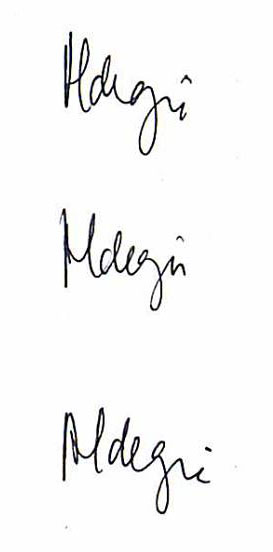 Aldegri
Aldegri
Aldegri